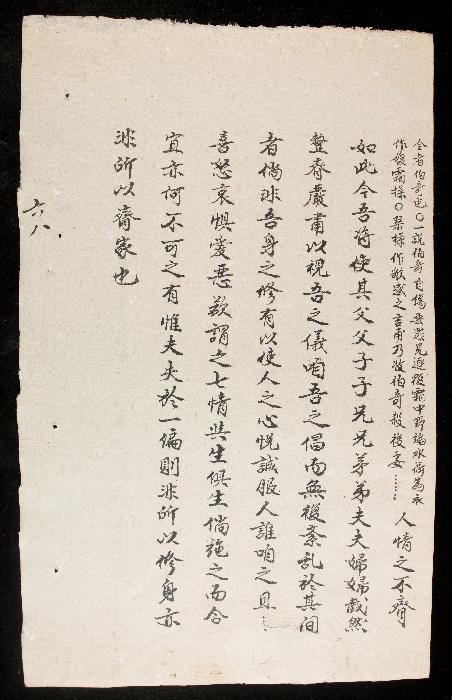 令者伯奇也〇一說伯奇自傷無罪見逐後霜中野編水荷為衣
作履霜操〇琴操作歌感之吉甫乃收伯奇殺後妻……人情之不齊
如此今吾將使其父父子子兄兄弟弟夫夫婦婦截然
整齊嚴肅以視吾之儀咱吾之倡而無復紊乱於其间
者倘非吾身之修有以使人之心悅誠服人誰咱之且……
喜怒哀惧愛惡欲謂之七情與生俱生倘施之而合
宜亦何不可之有惟夫失於一偏則非所以修身亦
非所以齊家也
六八